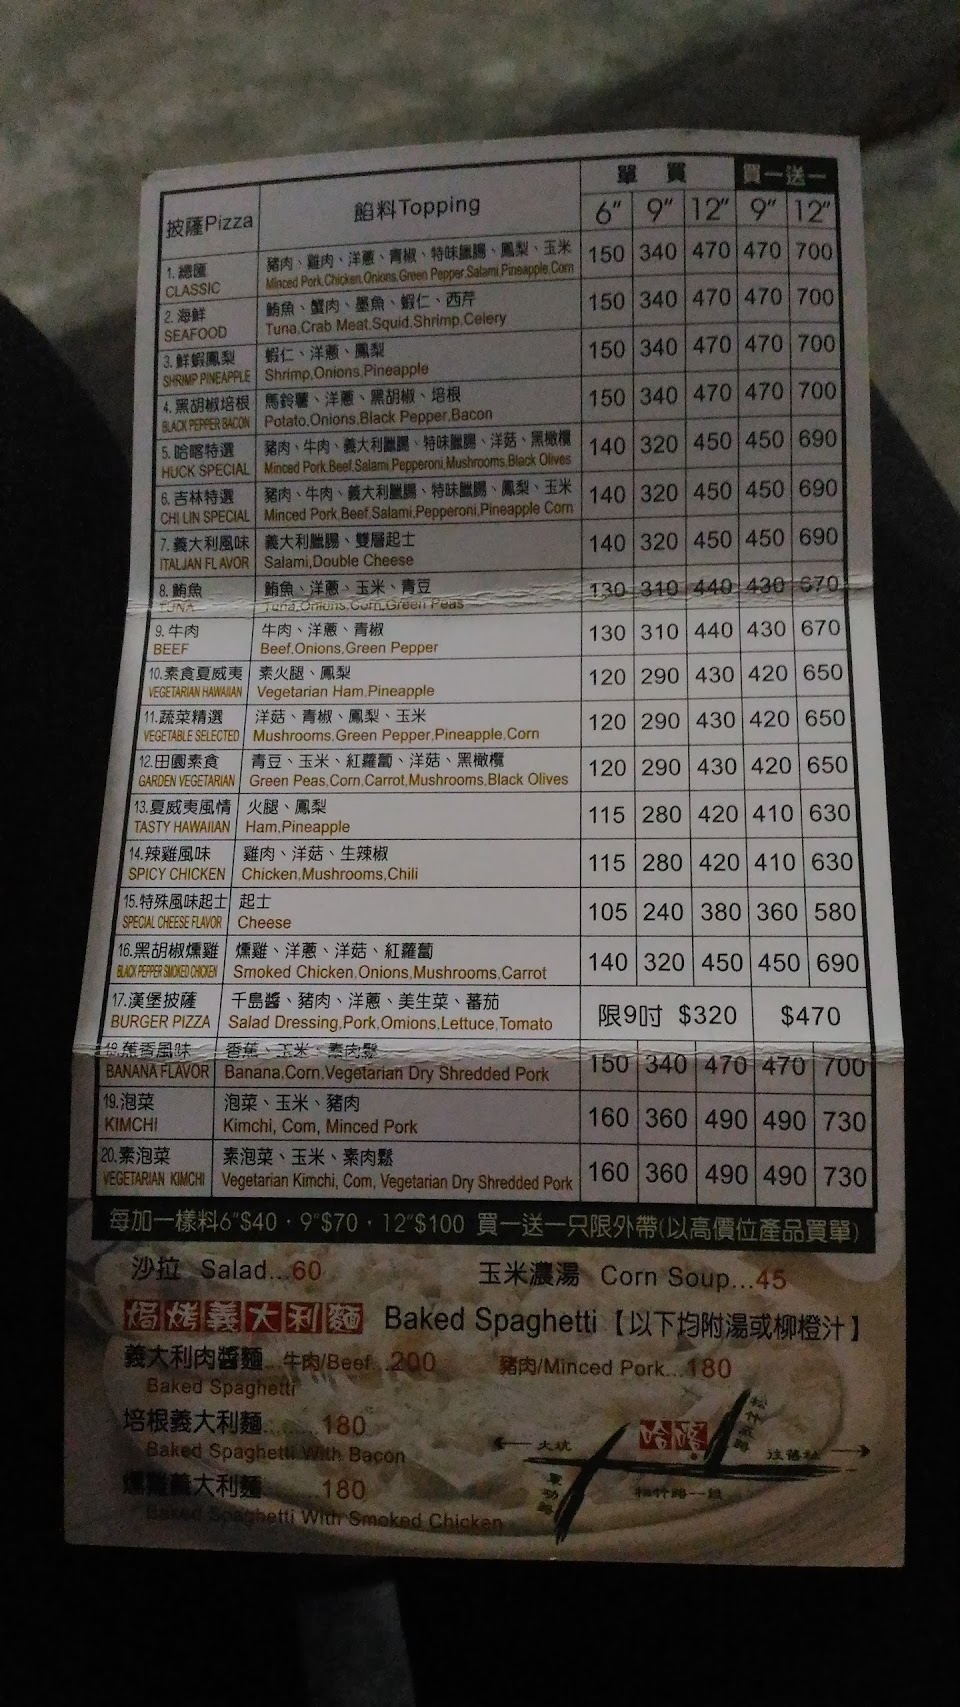 單 買 買一送一
披薩Pizza 餡料Topping 6" 9" 12" 9" 12"
1.總匯 豬肉、雞肉、洋蔥、青椒、特味臘腸、鳳梨、玉米 150 340 470 470 700
CLASSIC Minced Pork,Chicken,Onions,Green Pepper,Salami,Pineapple,Corn
2.海鮮 鮪魚、蟹肉、墨魚、蝦仁、西芹 150 340 470 470 700
SEAFOOD Tuna,Crab Meat,Squid,Shrimp,Celery
3.鮮蝦鳳梨 蝦仁、洋蔥、鳳梨 150 340 470 470 700
SHRIMP PINEAPPLE Shrimp,Onions,Pineapple
4.黑胡椒培根 馬鈴薯、洋蔥、黑胡椒、培根 150 340 470 470 700
BLACK PEPPER BACON Potato,Onions,Black Pepper,Bacon
5.哈喀特選 豬肉、牛肉、義大利臘腸、特味臘腸、洋菇、黑橄欖 140 320 450 450 690
HUCK SPECIAL Minced Pork,Beef,Salami,Pepperoni,Mushrooms,Black Olives
6.吉林特選 豬肉、牛肉、義大利臘腸、特味臘腸、鳳梨、玉米 140 320 450 450 690
CHI LIN SPECIAL Minced Pork,Beef,Salami,Pepperoni,Pineapple Corn
7.義大利風味 義大利臘腸、雙層起士 140 320 450 450 690
ITALJAN FLAVOR Salami,Double Cheese
8.鮪魚 鮪魚、洋蔥、玉米、青豆 130 310 440 430 670
TUNA Tuna,Onions,Corn,Green Peas
9.牛肉 牛肉、洋蔥、青椒 130 310 440 430 670
BEEF Beef,Onions,Green Pepper
10.素食夏威夷 素火腿、鳳梨 120 290 430 420 650
VEGETARIAN HAWAIIAN Vegetarian Ham,Pineapple
11.蔬菜精選 洋菇、青椒、鳳梨、玉米 120 290 430 420 650
VEGETABLE SELECTED Mushrooms,Green Pepper,Pineapple,Corn
12.田園素食 青豆、玉米、紅蘿蔔、洋菇、黑橄欖 120 290 430 420 650
GARDEN VEGETARIAN Green Peas,Corn,Carrot,Mushrooms,Black Olives
13.夏威夷風情 火腿、鳳梨 115 280 420 410 630
TASTY HAWAIIAN Ham,Pineapple
14.辣雞風味 雞肉、洋菇、生辣椒 115 280 420 410 630
SPICY CHICKEN Chicken,Mushrooms,Chili
15.特殊風味起士 起士 105 240 380 360 580
SPECIAL CHEESE FLAVOR Cheese
16.黑胡椒燻雞 燻雞、洋蔥、洋菇、紅蘿蔔 140 320 450 450 690
BLACK PEPPER SMOKED CHICKEN Smoked Chicken,Onions,Mushrooms,Carrot
17.漢堡披薩 千島醬、豬肉、洋蔥、美生菜、蕃茄 限9吋 $320 $470
BURGER PIZZA Salad Dressing,Pork,Omions,Lettuce,Tomato
18.蕉香風味 香蕉、玉米、素肉鬆 150 340 470 470 700
BANANA FLAVOR Banana,Corn,Vegetarian Dry Shredded Pork
19.泡菜 泡菜、玉米、豬肉 160 360 490 490 730
KIMCHI Kimchi, Corn, Minced Pork
20.素泡菜 素泡菜、玉米、素肉鬆 160 360 490 490 730
VEGETARIAN KIMCHI Vegetarian Kimchi, Corn, Vegetarian Dry Shredded Pork
每加一樣料6"$40‧9"$70‧12"$100 買一送一只限外帶(以高價位產品買單)
沙拉 Salad...60 玉米濃湯 Corn Soup...45
焗烤義大利麵 Baked Spaghetti【以下均附湯或柳橙汁】
義大利肉醬麵...牛肉/Beef...200 豬肉/Minced Pork...180
Baked Spaghetti
培根義大利麵.........180
Baked Spaghetti With Bacon
燻雞義大利麵.........180
Baked Spaghetti With Smoked Chicken
大坑 哈喀 松竹五路 往舊社
軍功路 松竹路一段